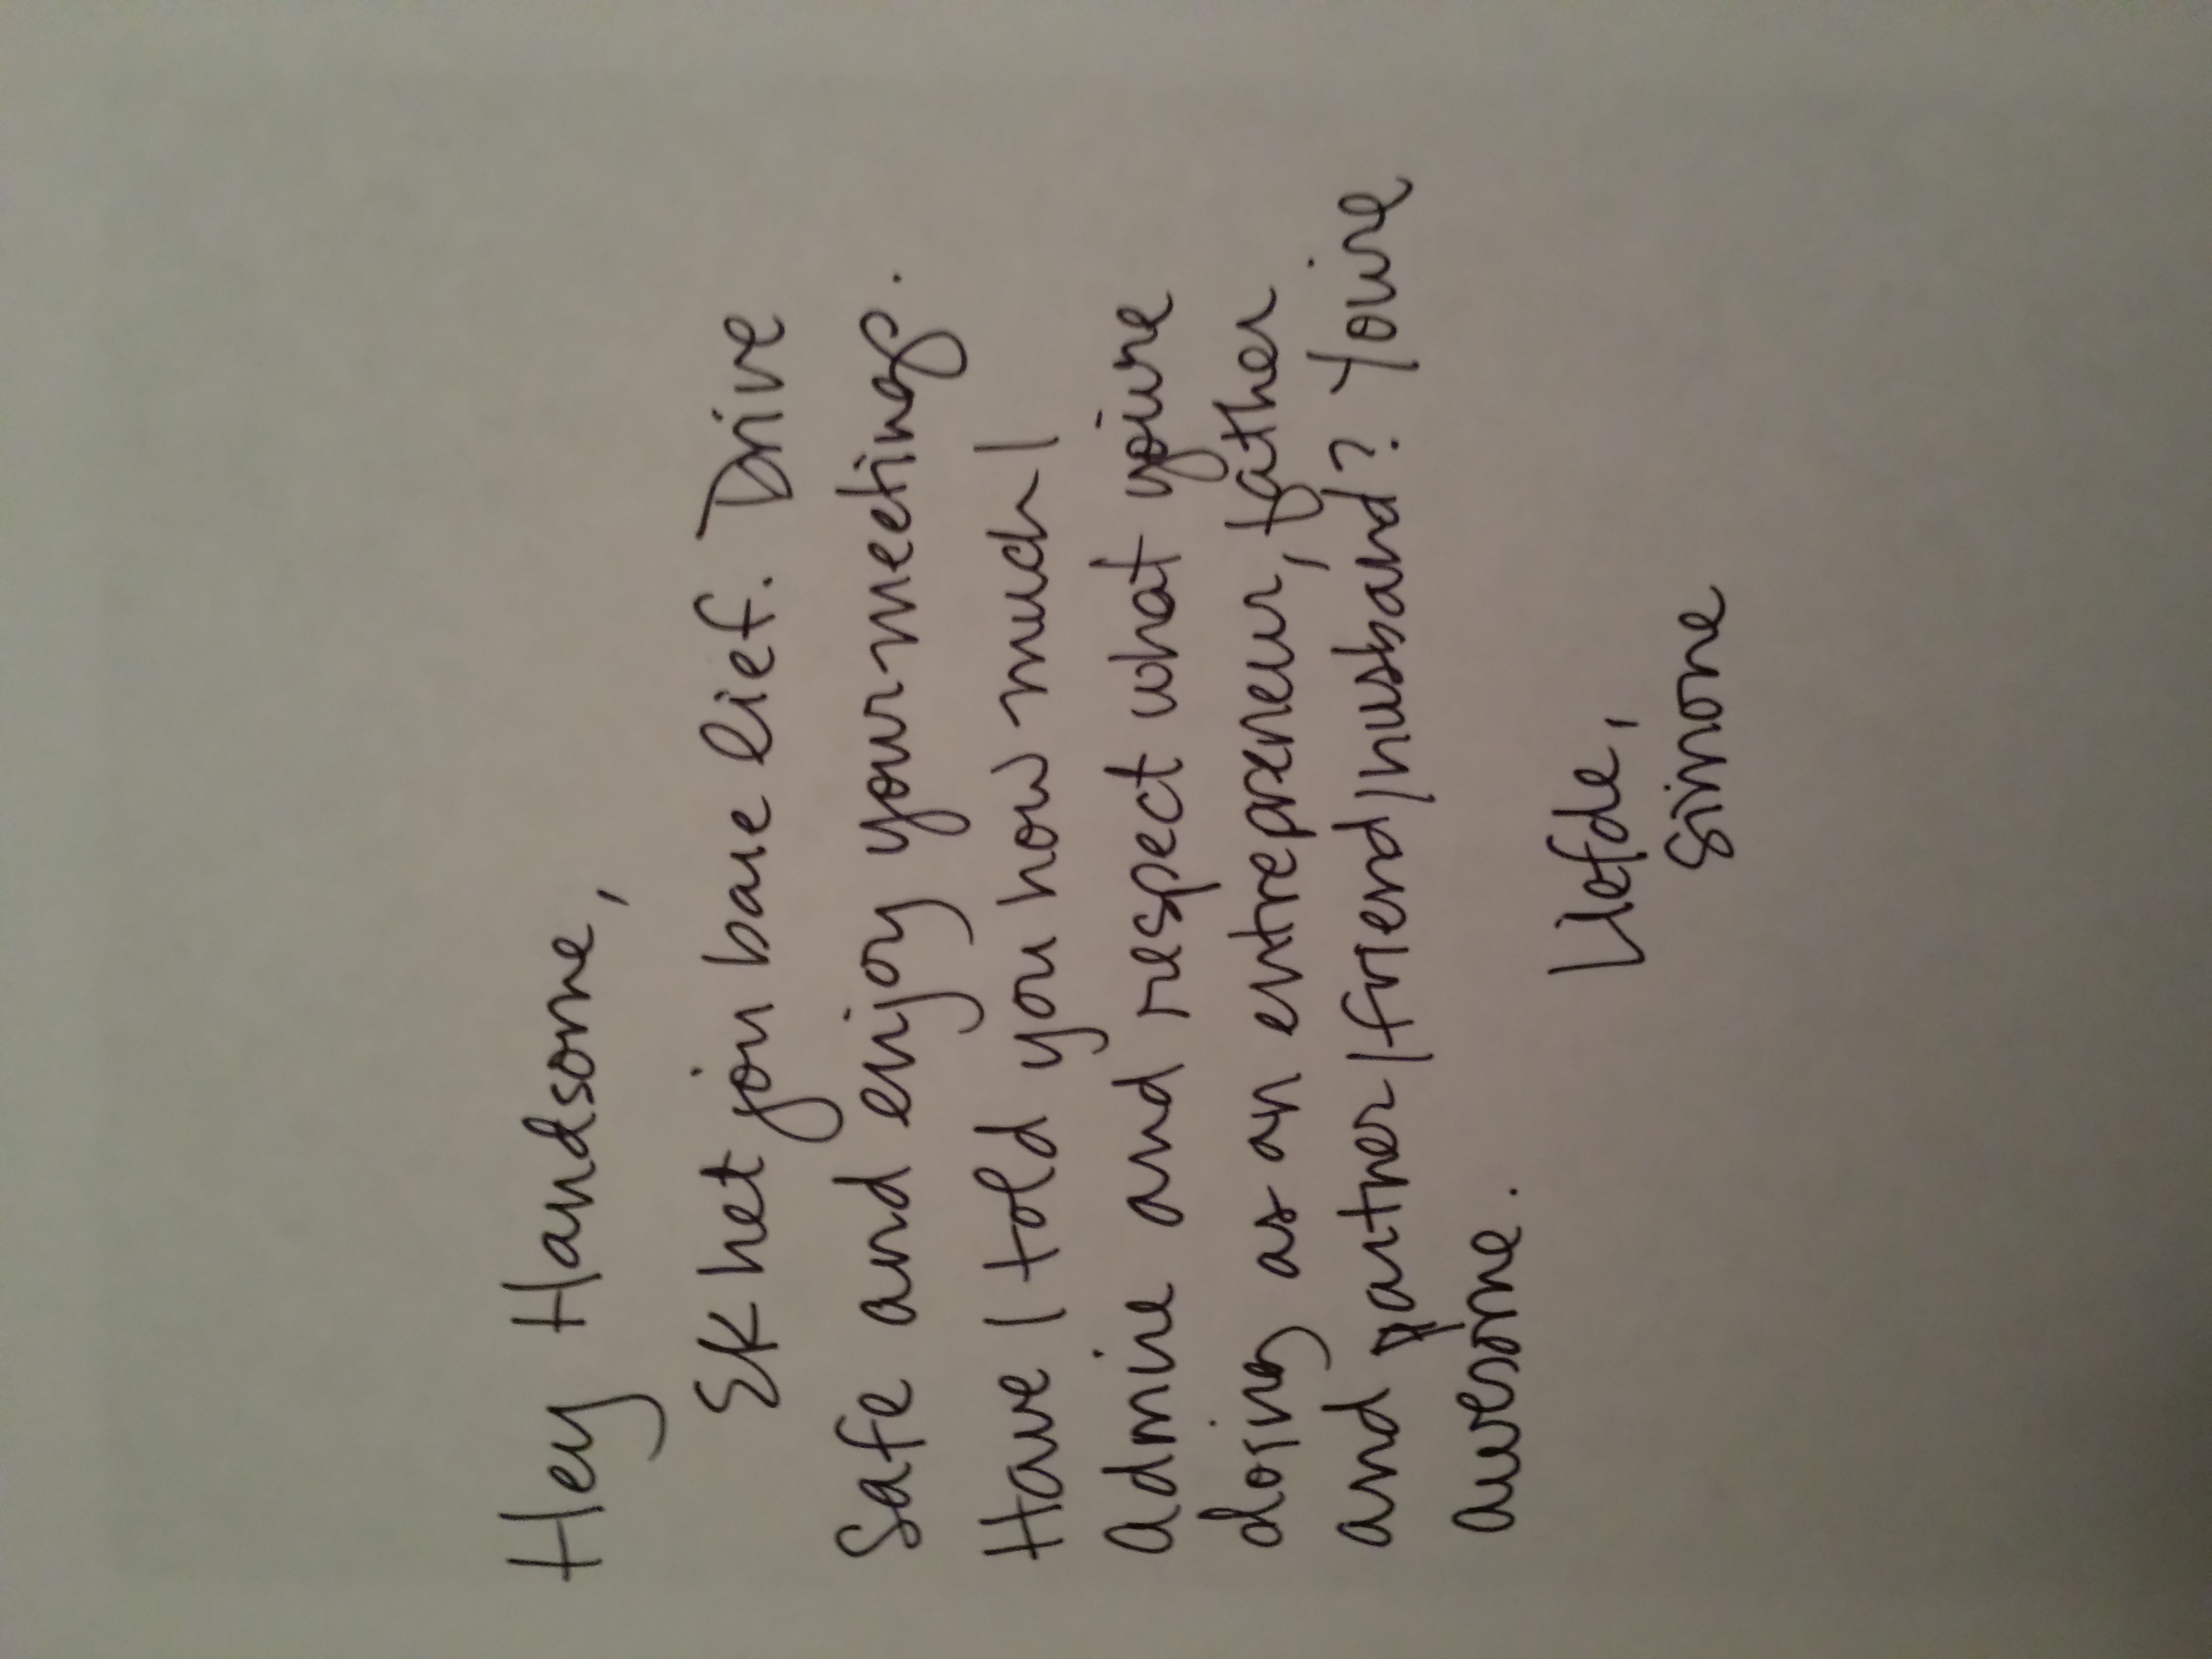 Hey Handsome,
Ek het jou baie lief. Drive
safe and enjoy your meetings.
Have I told you how much I
admire and respect what you're
doing as an entrepreneur, father
and partner/friend/husband? You're
awesome.
Liefde,
Simone